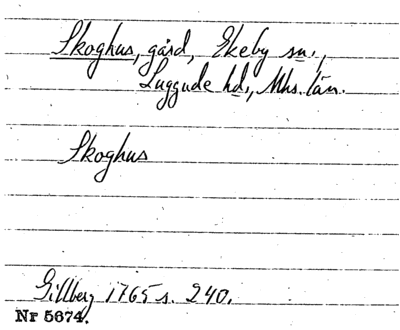 Skoghus, gård, Ekeby sn.,
Luggude hd., Mhs. län.
Skoghus
Gillberg 1765 s. 240.
Nr 5674.